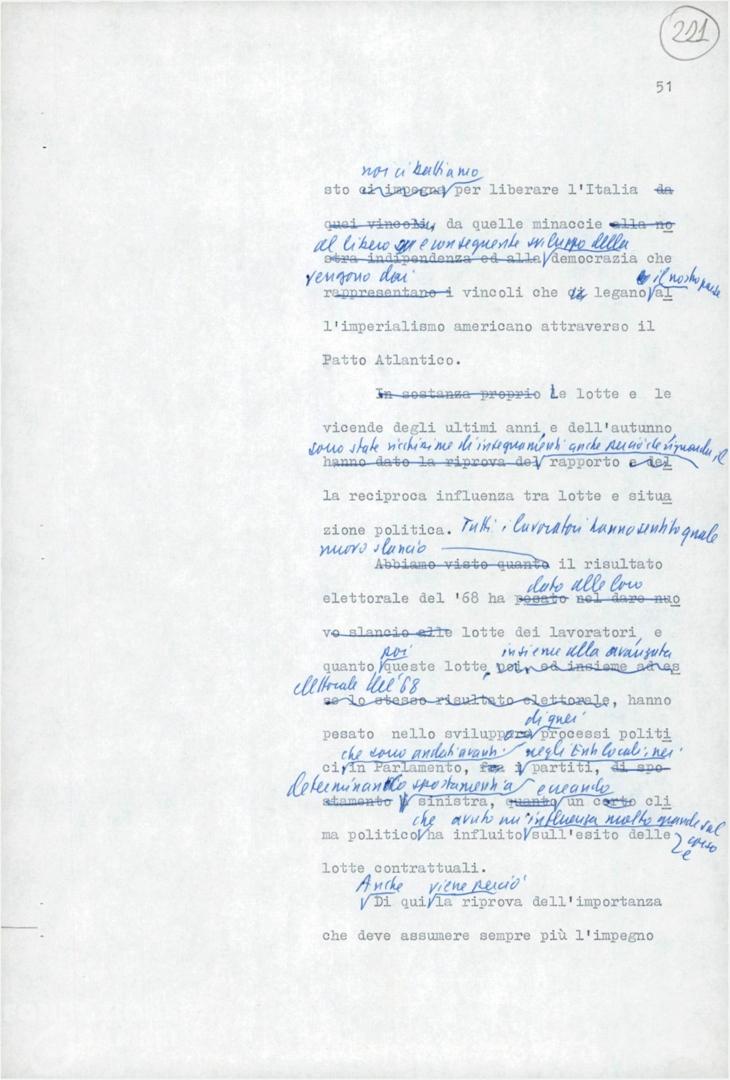 221
51
noi ci battiamo
sto ci impegna per liberare l'Italia da
quei vincoli, da quelle minaccie alla no
al libero e conseguente sviluppo della
stra indipendenza ed alla democrazia che
vengono dai
rappresentano i vincoli che ci legano al
il nostro paese
l'imperialismo americano attraverso il
Patto Atlantico.
In sostanza proprio Le lotte e le
vicende degli ultimi anni e dell'autunno,
sono state ricchissime di insegnamenti anche perciò che riguarda il
hanno dato la riprova del rapporto e del
la reciproca influenza tra lotte e situa
zione politica. Tutti i lavoratori hanno sentito quale
nuovo slancio
Abbiamo visto quanto il risultato
dato alle loro
elettorale del '68 ha pesato nel dare nuo
vo slancio alle lotte dei lavoratori, e
poi insieme alla avanzata
quanto queste lotte poi, ed insieme ad es
elettorale del '68
se lo stesso risultato elettorale, hanno
di quei
pesato nello sviluppare processi politi
che sono andati avanti negli Enti locali, nei
ci, in Parlamento, fra i partiti, di spo-
determinando spostamenti a e creando
stamento a sinistra, quanto un certo cli
che avuto un'influenza molto grande sul
corso
e
ma politico ha influito sull'esito delle
lotte contrattuali.
Anche viene perciò
Di qui la riprova dell'importanza
che deve assumere sempre più l'impegno